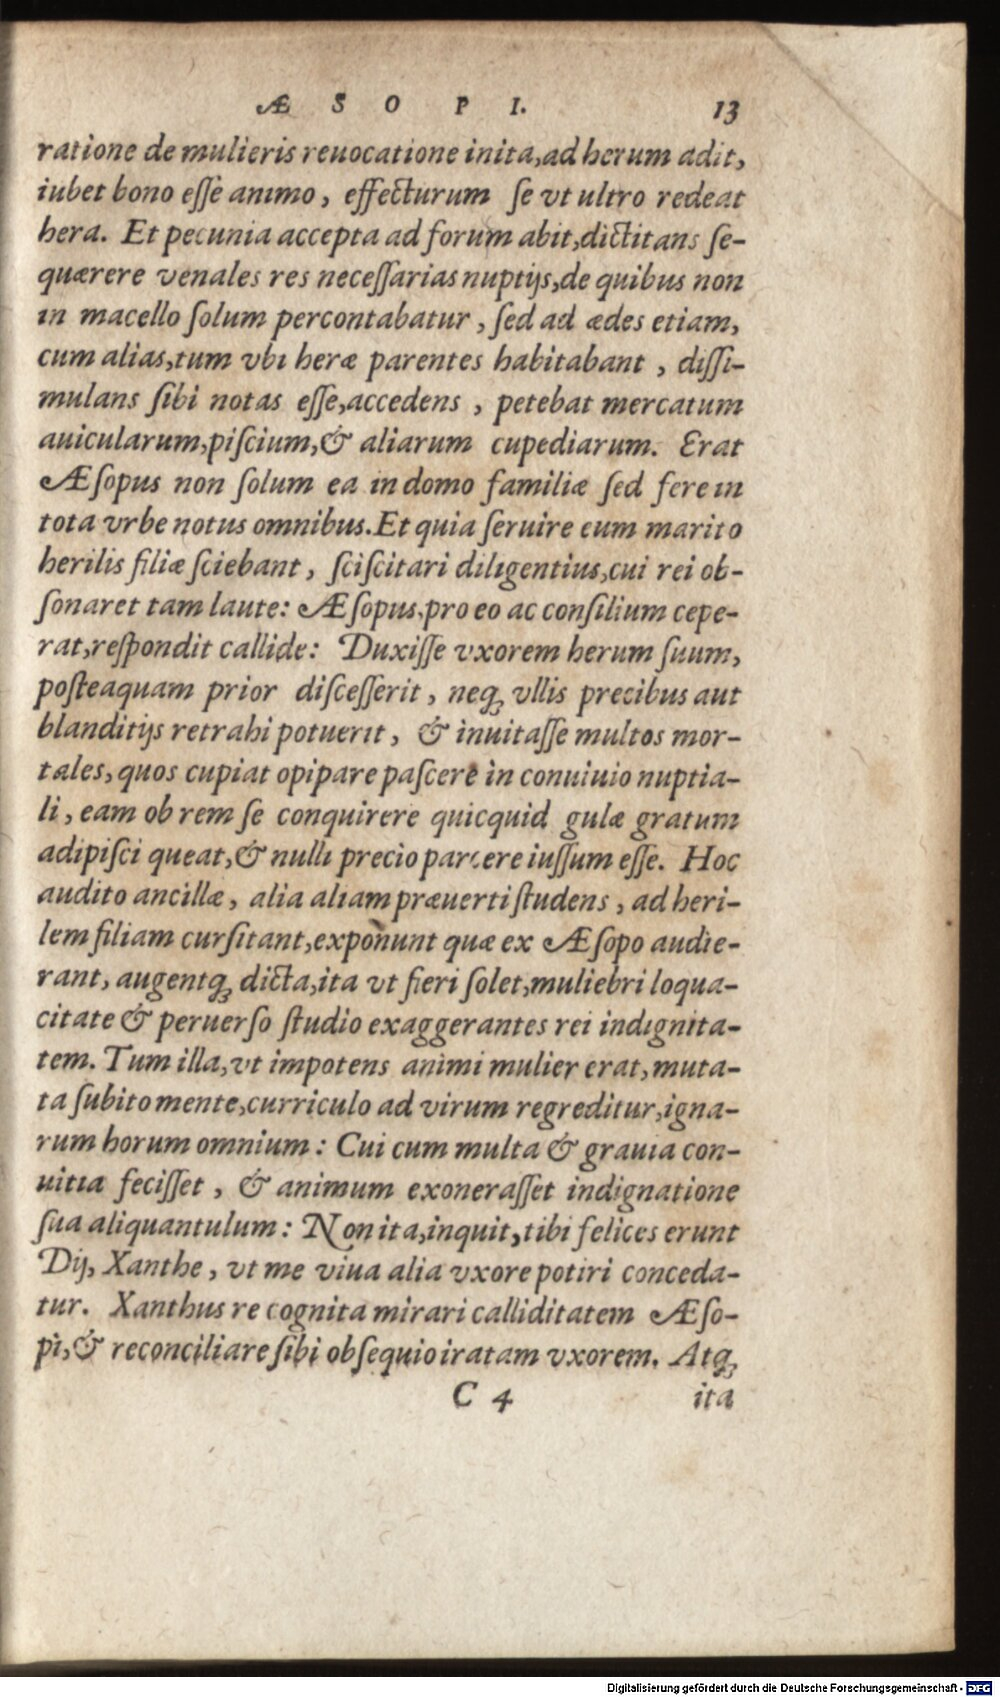 ÆSOPI. 13
ratione de mulieris reuocatione inita, ad herum adit,
iubet bono eſſe animo, effecturum ſe vt ultro redeat
hera. Et pecunia accepta ad forum abit, dictitans ſe-
quærere venales res neceſſarias nuptijs, de quibus non
in macello ſolum percontabatur, ſed ad ædes etiam,
cum alias, tum vbi heræ parentes habitabant, diſſi-
mulans ſibi notas eſſe, accedens, petebat mercatum
auicularum, piſcium, & aliarum cupediarum. Erat
Æſopus non ſolum ea in domo familiæ ſed fere in
tota vrbe notus omnibus. Et quia ſeruire eum marito
herilis filiæ ſciebant, ſciſcitari diligentius, cui rei ob-
ſonaret tam laute: Æſopus, pro eo ac conſilium cepe-
rat, reſpondit callide: Duxiſſe vxorem herum ſuum,
poſteaquam prior diſceſſerit, neq; vllis precibus aut
blanditijs retrahi potuerit, & inuitaſſe multos mor-
tales, quos cupiat opipare paſcere in conuiuio nuptia-
li, eam ob rem ſe conquirere quicquid gulæ gratum
adipiſci queat, & nulli precio parcere iuſſum eſſe. Hoc
audito ancillæ, alia aliam præuerti ſtudens, ad heri-
lem filiam curſitant, exponunt quæ ex Æſopo audie-
rant, augentq; dicta, ita vt fieri ſolet, muliebri loqua-
citate & peruerſo ſtudio exaggerantes rei indignita-
tem. Tum illa, vt impotens animi mulier erat, muta-
ta ſubito mente, curriculo ad virum regreditur, igna-
rum horum omnium: Cui cum multa & grauia con-
uitia feciſſet, & animum exoneraſſet indignatione
ſua aliquantulum: Non ita, inquit, tibi felices erunt
Dij, Xanthe, vt me viua alia vxore potiri conceda-
tur. Xanthus re cognita mirari calliditatem Æſo-
pi, & reconciliare ſibi obſequio iratam vxorem. Atq;
C 4 ita
Digitalisierung gefördert durch die Deutsche Forschungsgemeinschaft - DFG